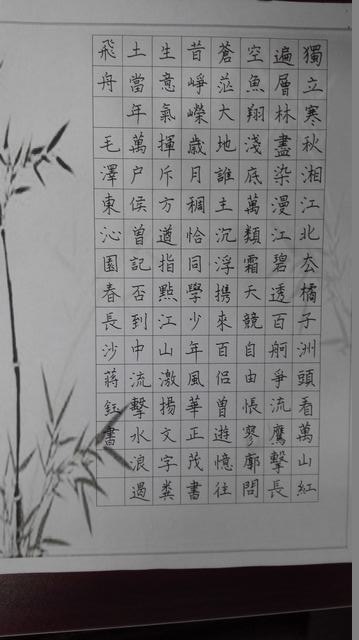 獨立寒秋湘江北厺橘子洲頭看萬山紅
遍層林盡染漫江碧透百舸爭流鷹擊長
空魚翔淺底萬類霜天競自由悵寥廓問
蒼茫大地誰主沉浮携來百侶曾遊憶往
昔崢嶸歲月稠恰同學少年風華正茂書
生意氣揮斥方遒指點江山激揚文字糞
土當年萬户侯曾記否到中流擊水浪遏
飛舟 毛澤東沁園春長沙蔣鈺書